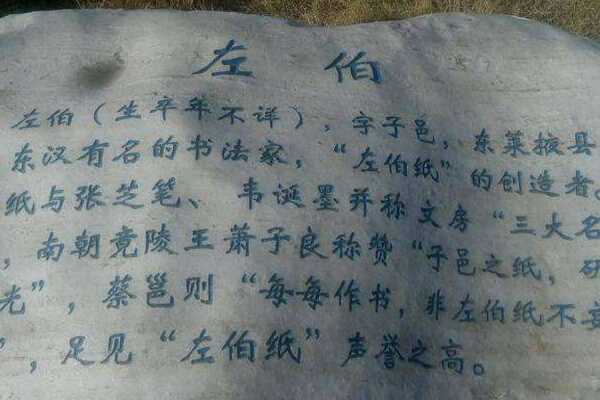 左伯
左伯（生卒年不详），字子邑，东莱掖县
东汉有名的书法家，“左伯纸”的创造者。
纸与张芝笔、韦诞墨并称文房“三大名
，南朝竟陵王萧子良称赞“子邑之纸，研
光”，蔡邕则“每每作书，非左伯纸不妄
”，足见“左伯纸”声誉之高。